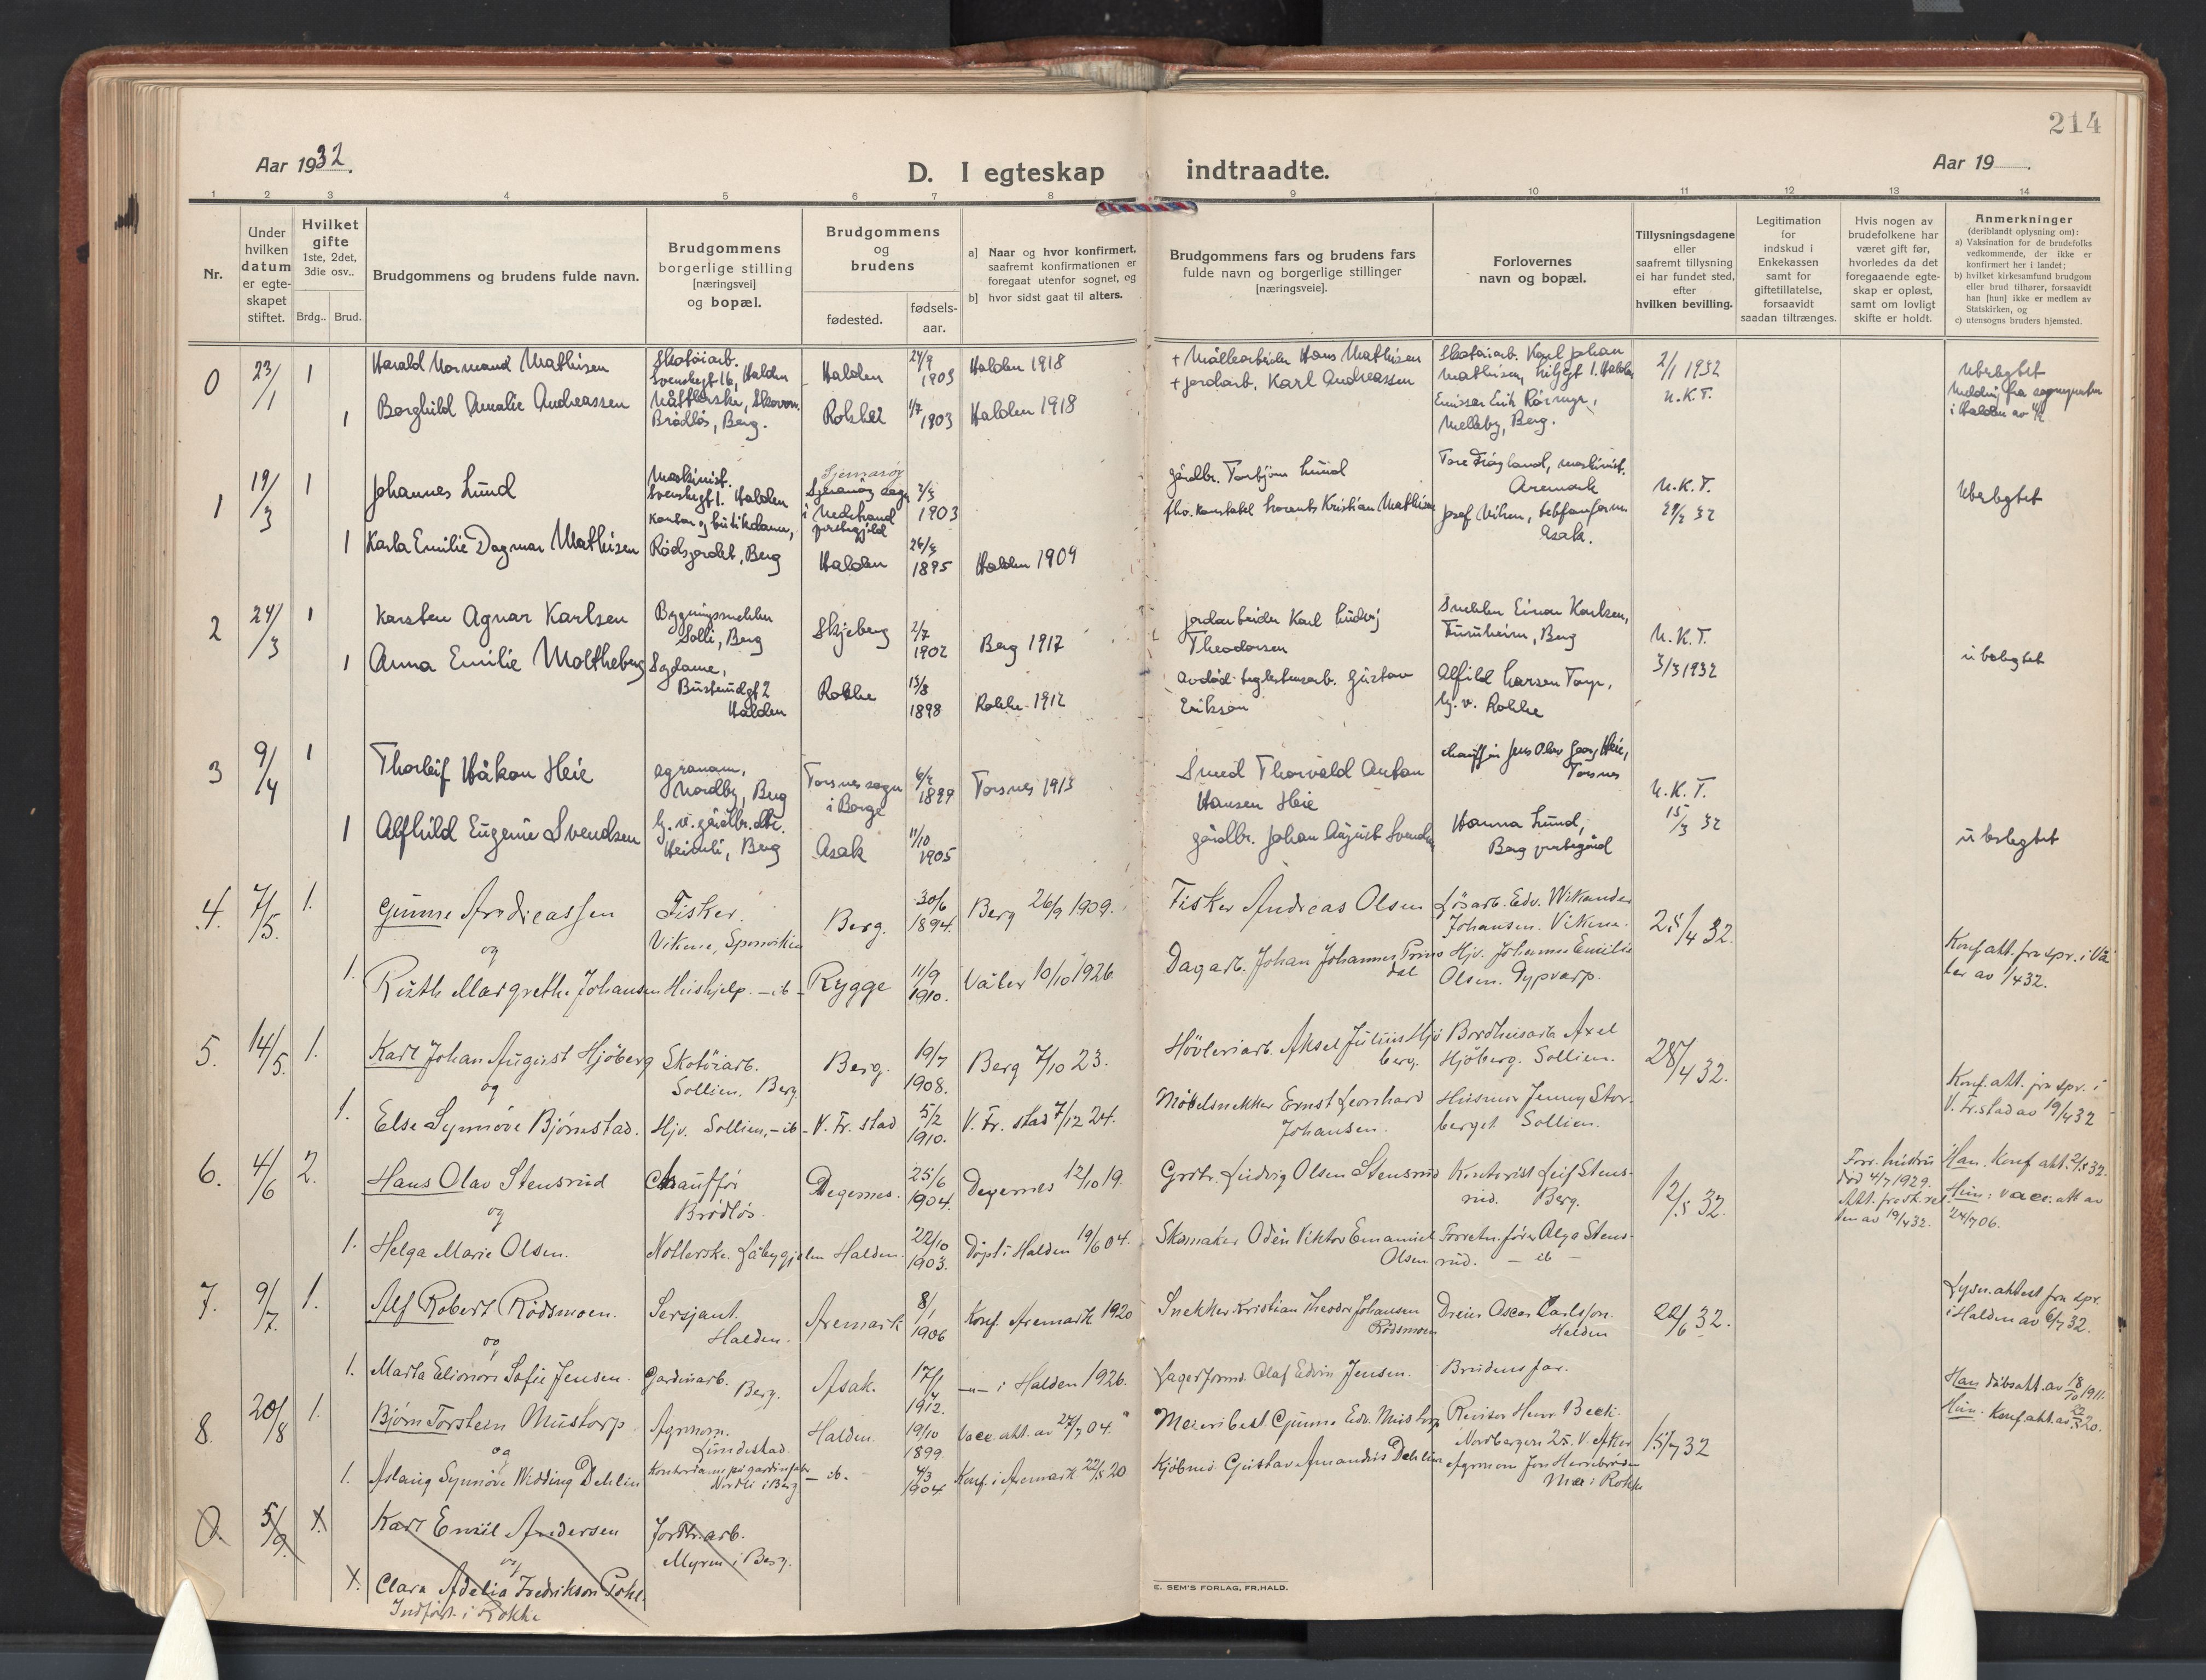 214
Aar 1932.
D. I egteskap indtraadte.
Aar 19
1 2 3 4 5 6 7 8 9 10 11 12 13 14
Nr.
Under hvilken datum er egte- skapet stiftet.
Hvilket gifte
1ste, 2det, 3die osv..
Brdg.. Brud.
Brudgommens og brudens fulde navn.
Brudgommens borgerlige stilling [næringsvei] og bopæl.
Brudgommens og brudens
fødested.
fødsels- aar.
a] Naar og hvor konfirmert, saafremt konfirmationen er foregaat utenfor sognet, og
b] hvor sidst gaat til alters.
Brudgommens fars og brudens fars fulde navn og borgerlige stillinger [næringsveie].
Forlovernes navn og bopæl.
Tillysningsdagene eller saafremt tillysning ei har fundet sted, efter hvilken bevilling.
Legitimation for indskud i Enkekassen samt for giftetillatelse, forsaavidt saadan tiltrænges.
Hvis nogen av brudefolkene har været gift før, hvorledes da det foregaaende egte- skap er opløst, samt om lovligt skifte er holdt.
Anmerkninger
(deriblandt oplysning om):
a) Vaksination for de brudefolks vedkommende, der ikke er konfirmert her i landet;
b) hvilket kirkesamfund brudgom eller brud tilhører, forsaavidt han [hun] ikke er medlem av Statskirken, og
c) utensogns bruders hjemsted.
0 23/1 1 Harald Normand Mathisen Skotøiarb. Svenskegt 16, Halden Halden 24/9 1903 Halden 1918
+ Møllearbeider Hans Mathisen Skotøiarb. Karl Johan Mathisen, Halden 2/1 1932 Ubeslegtet
1 Borghild Amalie Andreassen Nåtlerske, Brødløs, Berg. Rokke 1/7 1903 Halden 1918
+ jordarb. Karl Andreassen Emissær Erik Melleby, Berg. U.K.T.
i Halden av
1 19/3 1 Johannes Lund Maskinist. Svenskegt 1. Halden Sjernarøy
Sjernarøy sogn i Nedstrand prestegjeld 2/3 1903
gårdbr. Torbjørn Lund Tore Frøyland, maskinist. Aremark U.K.T. Ubeslegtet
1 Karla Emilie Dagmar Mathisen Kontor og butikdame, Rødsjordet, Berg Halden 26/3 1895 Halden 1909
fhv. konstabel Laurents Kristian Mathisen Josef Asak. 29/2 32
2 24/3 1 Karsten Agnar Karlsen Bygningssnekker Solli, Berg Skjeberg 2/7 1902 Berg 1917
jordarbeider Karl Ludvig Theodorsen Snekker Einar Karlsen, Furuheim, Berg U.K.T. ubeslegtet
1 Anna Emilie Moltheberg Sydame, Halden Rokke 13/8 1898 Rokke 1912
Avdød teglstensarb. Gustav Eriksen Alfild Larsen Torp, hj. v. Rokke 3/3 1932
3 9/4 1 Thorleif Håkon Heie agronom, Nordby, Berg Torsnes sogn i Borge 6/2 1899 Torsnes 1913
Smed Thorvald Anton Hansen Heie chauffør Jens Olav Heie, Torsnes U.K.T.
1 Alfhild Eugenie Svendsen hj. v. gårdbr. dtr. Heimli, Berg Asak 11/10 1905
gårdbr. Johan August Svendsen Hanna Lund, Berg prestegård 15/3 32 ubeslegtet
4. 7/5. 1. Gunne Andreassen Fisker. Vikene, Sponviken Berg. 30/6 1894. Berg 26/9 1909.
Fisker Andreas Olsen Løsarb. Edv. Wikander Johansen. Vikene. 25/4 32.
og
1. Ruth Margrethe Johansen Hushjelp. — ib — Rygge 11/9 1910. Våler 10/10 1926.
Dagarb. Johan Johannes Prinsdal Hjv. Johanne Emilie Olsen. Dypvarp. Konf.att. fra spr. i Våler av 1/4 32.
5. 14/5. 1. Karl Johan August Hjöberg Skotöiarb. Sollien. Berg. Berg. 19/7 1908. Berg 7/10 23.
Hövleriarb. Aksel Julius Hjöberg. Axel Hjöberg. Sollien. 28/4 32.
og
1. Else Synnöve Björnstad. Hjv. Sollien. — ib — V. Fr. stad 5/2 1910. V. Fr. stad 7/12 24.
Möbelsnekker Ernst Leonhard Johansen. Husmor Jenny Storberget Sollien. Konf. att. fra spr. i V. Fr.stad av 19/4 32
6. 4/6 2. Hans Olav Stensrud Chauffør Brödlös. Degernes. 25/6 1904. Degernes 12/10 19.
Grbr. Ludvig Olsen Stensrud Kontorist Leif Stensrud. Berg. 12/5 32. Forr. hustru död 4/7 1929. Att. fra sk.retten av 19/4 32. Han. Konf att. 2/5 32.
og
1. Helga Marie Olsen. Notlerske. Låbygjelen Halden. 22/10 1903. Döpt i Halden 19/6 04.
Skomaker Odin Viktor Emanuel Olsen Forretn.fører Olga Stensrud. — ib — Hun: vacc. att av 24/7 06.
7. 9/7. 1. Alf Robert Rödsmoen. Sersjant. Halden. Aremark 8/1 1906 Konf. Aremark 1920
Snekker Kristian Theodor Johansen Rödsmoen Dreier Oscar Carlsson. Halden 22/6 32. Lysn.attest fra spr. i Halden av 6/7 32.
og
1. Marta Elionore Sofie Jensen. Gardinarb. Berg. Asak. 17/1 1912. —"— i Halden 1926.
Lagerformd. Olaf Edvin Jensen. Brudens far.
8. 20/8 1. Bjørn Torstein Mustorp Agronom. Lundestad. Halden. 19/10 1899. Vacc. att. av 27/7 04.
Meieribest. Gunne Edv. Mustorp Revisor Henr Beck. V. Aker 15/7 32 Han dåbsatt. av 18/10 1911.
og
1. Aslaug Synnöve Widding Dehlin Kontordame på gardinfabr Nordli i Berg — ib. 4/3 1904 Konf. i Aremark 22/5 20
Kjöbmd. Gustav Amandus Dehlin Agronom Jon i Rokke Hun. Konf.att. av 22/5 20.
0. 5/9. 1. Karl Emil Andersen Jordbr.arb. Myren i Berg.
og
1. Clara Adelia Fredrikson Pohl.
Indført i Rokke
E. SEM'S FORLAG, FR.HALD.